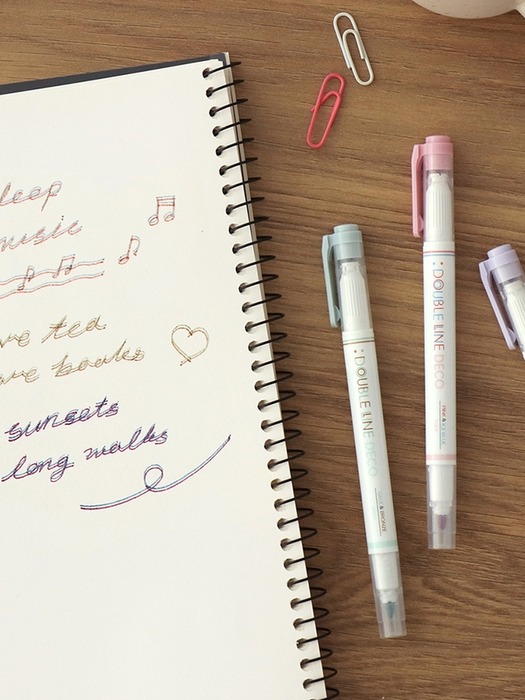 sleep
music
tea
books
sunsets
long walks
DOUBLE LINE DECO
DOUBLE LINE DECO